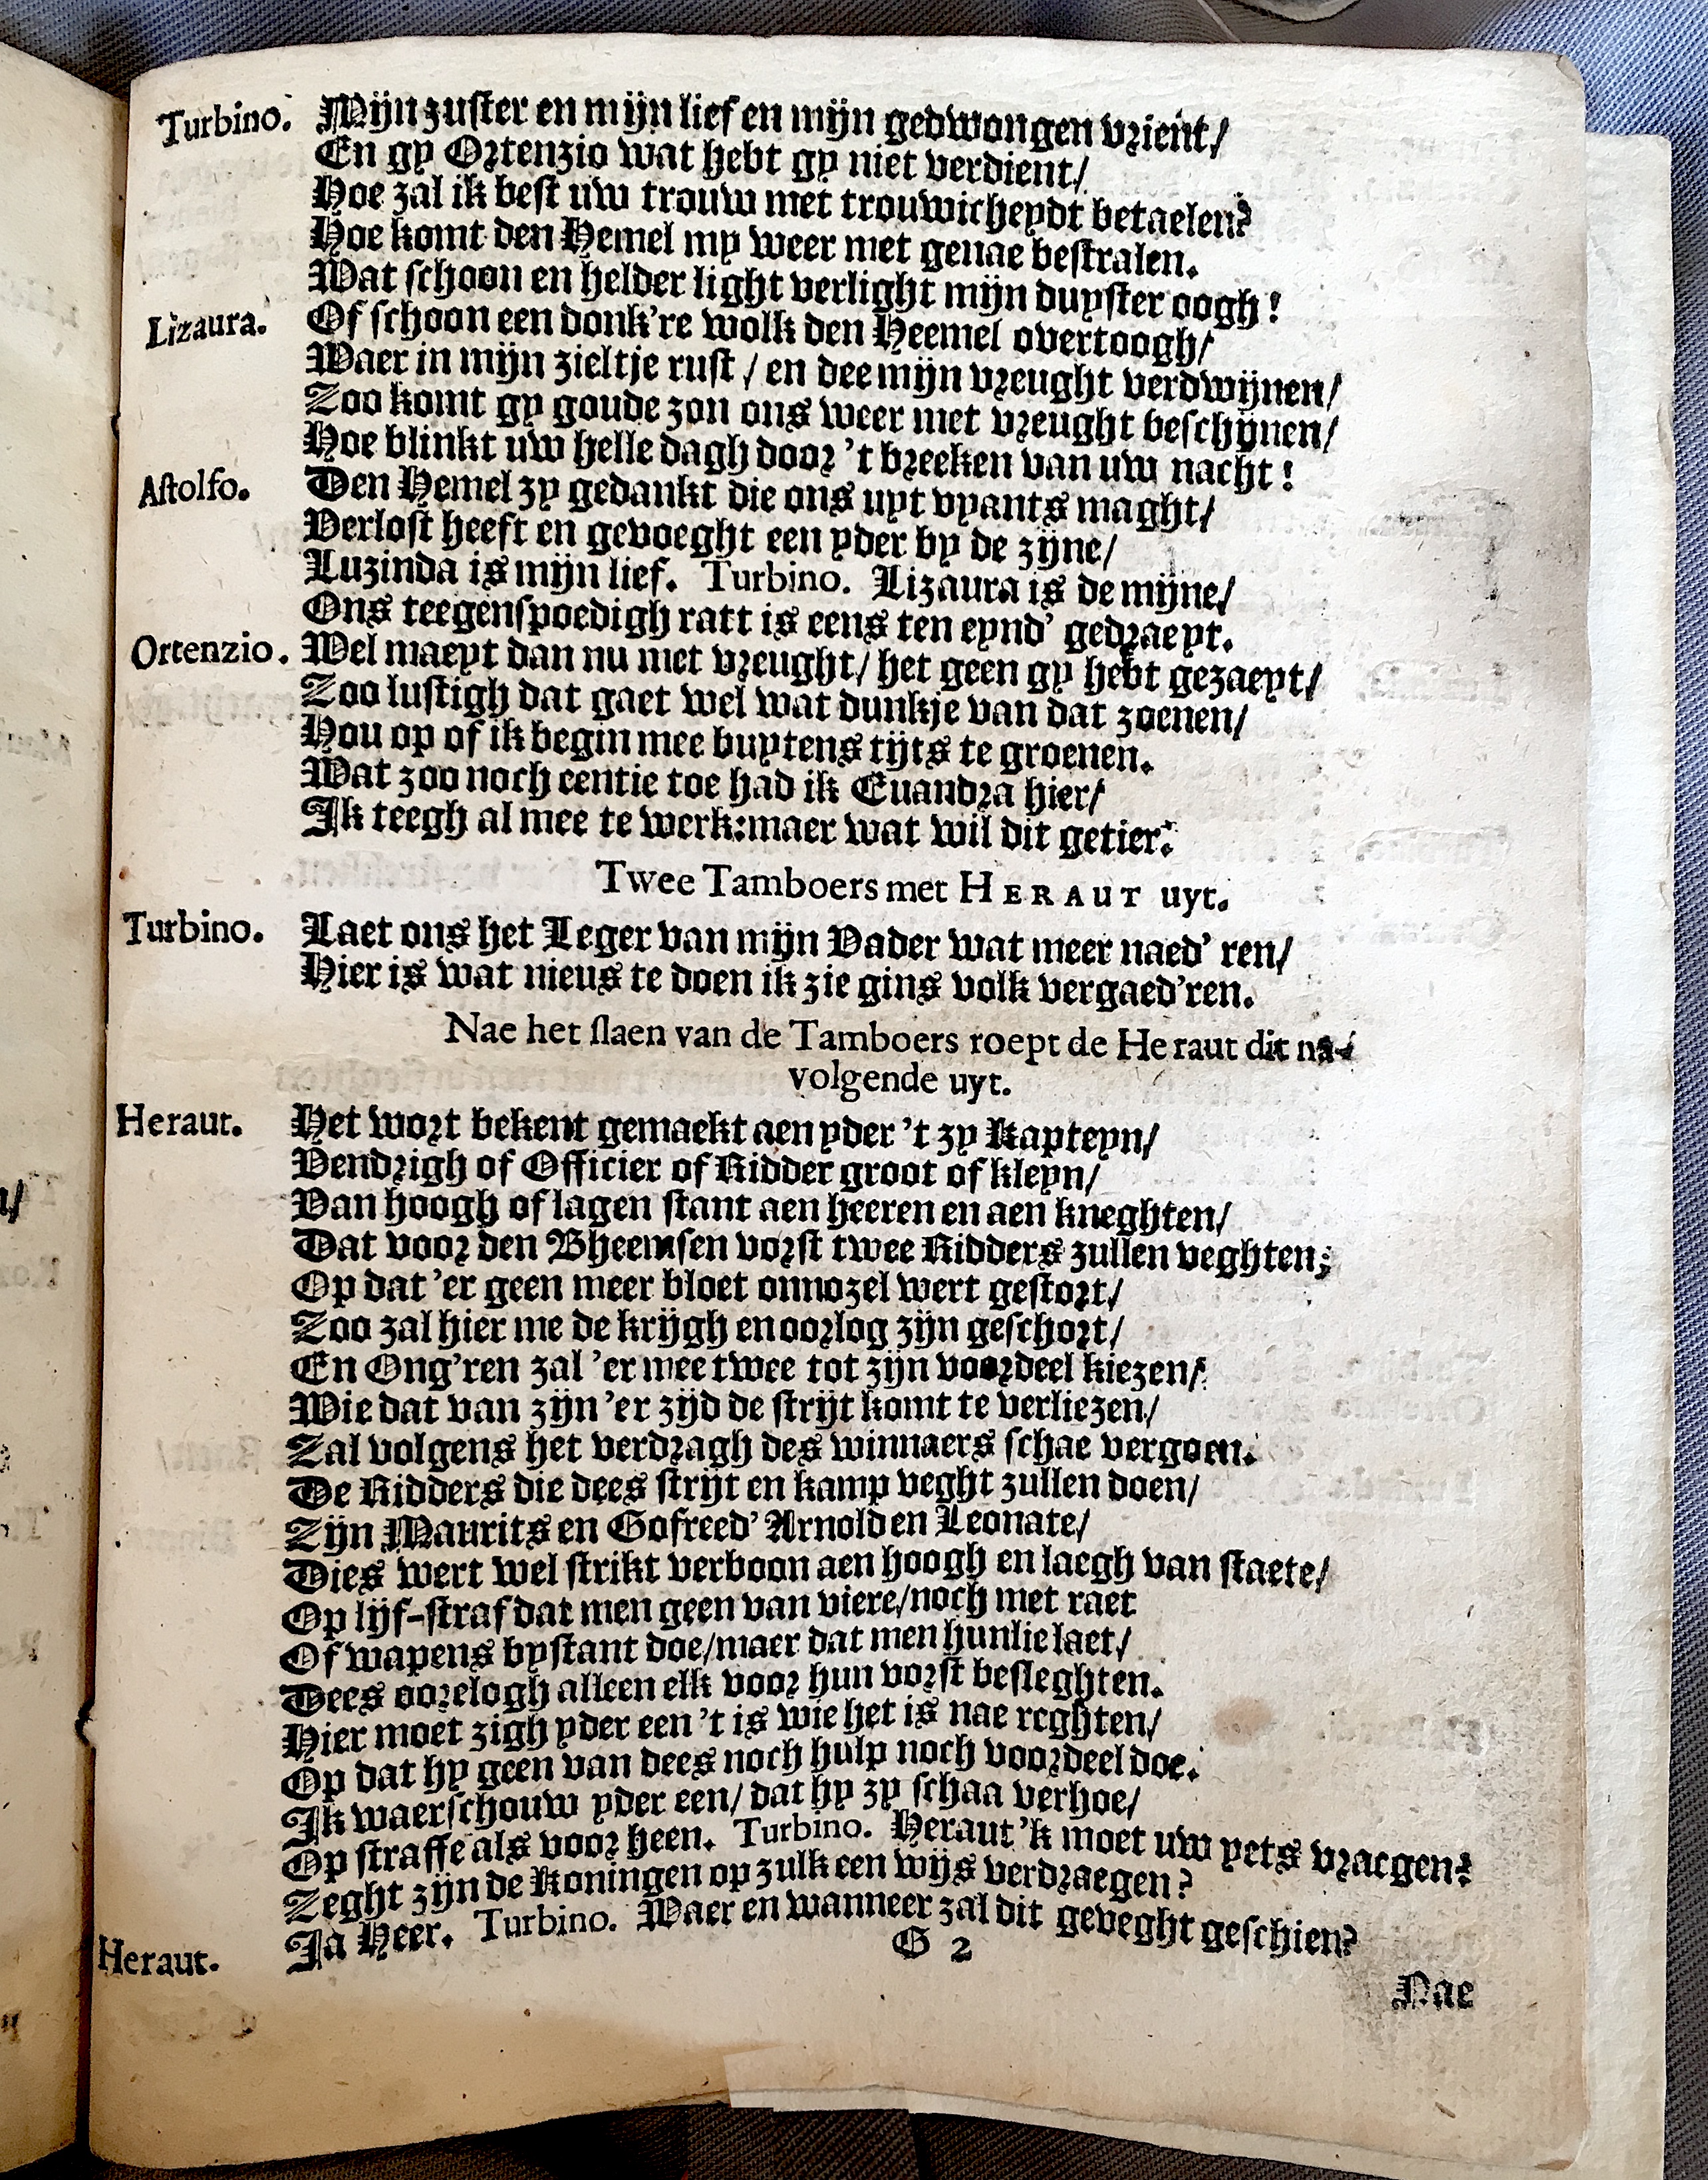 Turbino. Mijn zuster en mijn lief en mijn gedwongen vrient/
En gy Ortenzio wat hebt gy niet verdient/
Hoe zal ik best uw trouw met trouwicheydt betaelen?
Hoe komt den Hemel my weer met genae bestralen.
Wat schoon en helder light verlight mijn duyster oogh!
Lizaura. Of schoon een donk're wolk den Heemel overtoogh/
Waer in mijn zieltje rust / en dee mijn vreught verdwijnen/
Zoo komt gy goude zon ons weer met vreught beschijnen/
Hoe blinkt uw helle dagh door 't breeken van uw nacht!
Astolfo. Den Hemel zy gedankt die ons uyt vyants maght/
Verlost heeft en gevoeght een yder by de zijne/
Luzinda is mijn lief. Turbino. Lizaura is de mijne/
Ons teegenspoedigh ratt is eens ten eynd' gedraeyt.
Ortenzio. Wel maeyt dan nu met vreught/ het geen gy hebt gezaeyt/
Zoo lustigh dat gaet wel wat dunkje van dat zoenen/
Hou op of ik begin mee buytens tijts te groenen.
Wat zoo noch eentie toe had ik Euandra hier/
Ik teegh al mee te werk: maer wat wil dit getier.
Twee Tamboers met HERAUT uyt.
Turbino. Laet ons het Leger van mijn Vader wat meer naed'ren/
Hier is wat nieus te doen ik zie gins volk vergaed'ren.
Nae het slaen van de Tamboers roept de Heraut dit na-
volgende uyt.
Heraut. Het wort bekent gemaekt aen yder 't zy Kapteyn/
Vendrigh of Officier of Ridder groot of kleyn/
Van hoogh of lagen stant aen heeren en aen kneghten/
Dat voor den Bheemsen vorst twee Ridders zullen veghten;
Op dat 'er geen meer bloet onnozel wert gestort/
Zoo zal hier me de krijgh en oorlog zijn geschort/
En Ong'ren zal 'er mee twee tot zijn voordeel kiezen/
Wie dat van zijn 'er zijd de strijt komt te verliezen/
Zal volgens het verdragh des winnaers schae vergoen.
De Ridders die dees strijt en kamp veght zullen doen/
Zijn Maurits en Gofreed' Arnold en Leonate/
Dies wert wel strikt verboon aen hoogh en laegh van staete/
Op lijf-straf dat men geen van viere/ noch met raet
Of wapens bystant doe/ maer dat men hunlie laet/
Dees oorelogh alleen elk voor hun vorst besleghten.
Hier moet zigh yder een 't is wie het is nae reghten/
Op dat hy geen van dees noch hulp noch voordeel doe.
Ik waerschouw yder een/ dat hy zy schaa verhoe/
Op straffe als voor heen. Turbino. Heraut 'k moet uw yets vraegen?
Zeght zijn de Koningen op zulk een wijs verdraegen?
Heraut. Ja Heer. Turbino. Waer en wanneer zal dit geveght geschien?
G 2
Nae